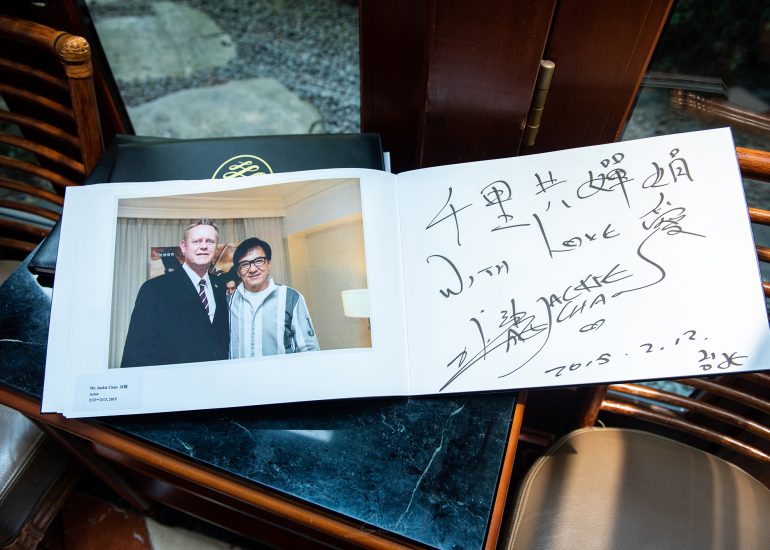 Mr. Jackie Chan 成龍
Actor
千里共嬋娟
WITH LOVE 愛
成龍 JACKIE
CHAN
2015.2.12.
台北